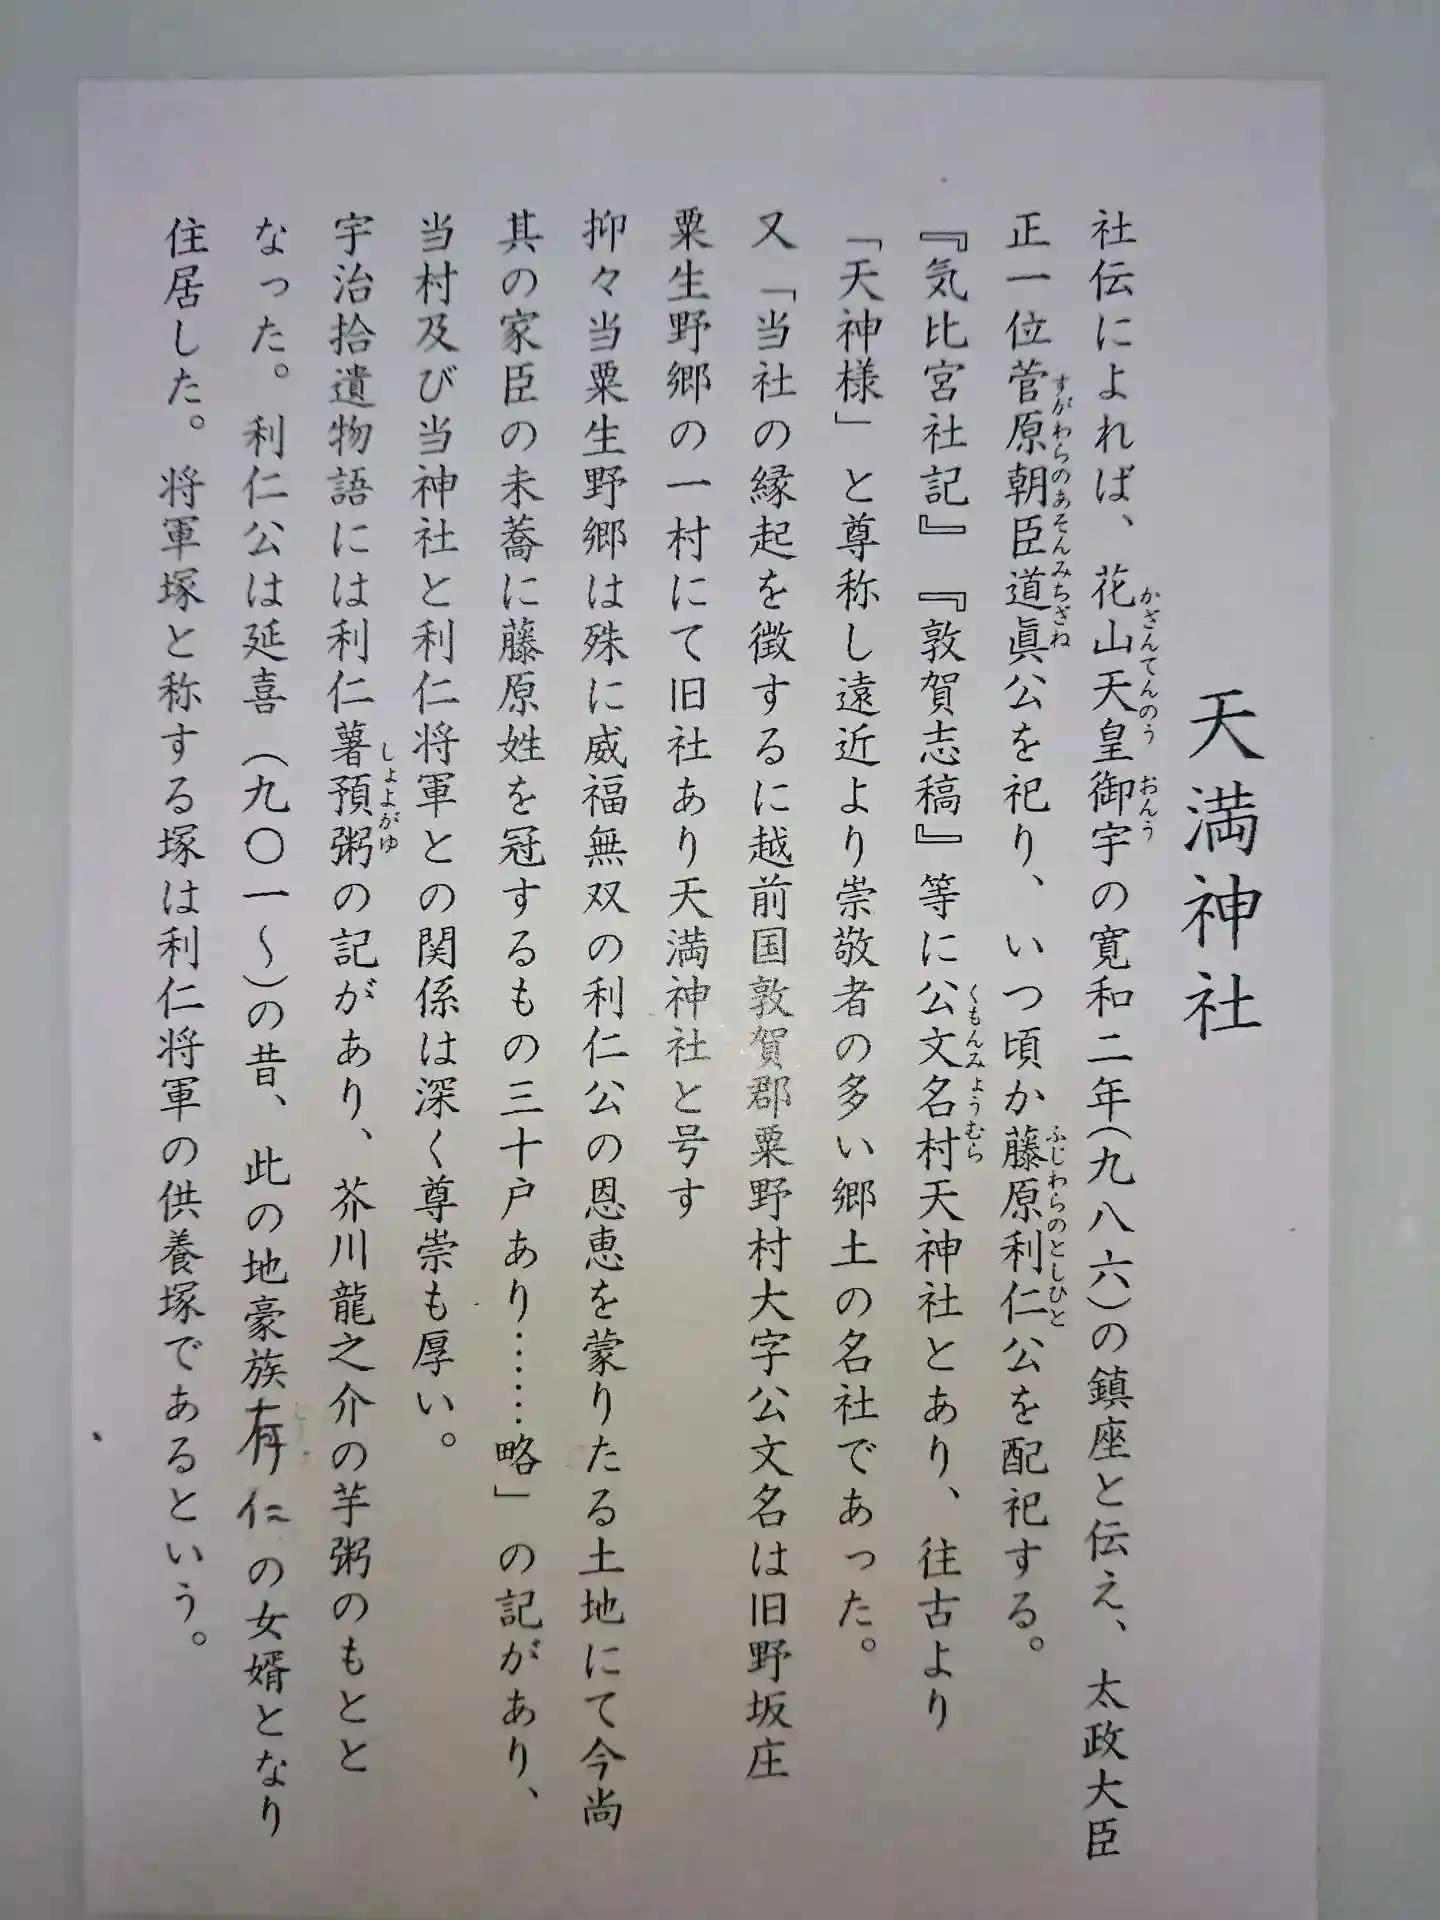 天満神社
社伝によれば、花山天皇御宇の寛和二年(九八六)の鎮座と伝え、太政大臣
正一位菅原朝臣道眞公を祀り、いつ頃か藤原利仁公を配祀する。
『気比宮社記』『敦賀志稿』等に公文名村天神社とあり、往古より
「天神様」と尊称し遠近より崇敬者の多い郷土の名社であった。
又「当社の縁起を徴するに越前国敦賀郡粟野村大字公文名は旧野坂庄
粟生野郷の一村にて旧社あり天満神社と号す
抑々当粟生野郷は殊に威福無双の利仁公の恩恵を蒙りたる土地にて今尚
其の家臣の末蕎に藤原姓を冠するもの三十戸あり……略」の記があり、
当村及び当神社と利仁将軍との関係は深く尊崇も厚い。
宇治拾遺物語には利仁薯預粥の記があり、芥川龍之介の芋粥のもとと
なった。利仁公は延喜(九〇一〜)の昔、此の地豪族有仁の女婿となり
住居した。将軍塚と称する塚は利仁将軍の供養塚であるという。
かざんてんのう
おんう
すがわらのあそんみちざね
ふじわらのとしひと
くもんみょうむら
しよよがゆ